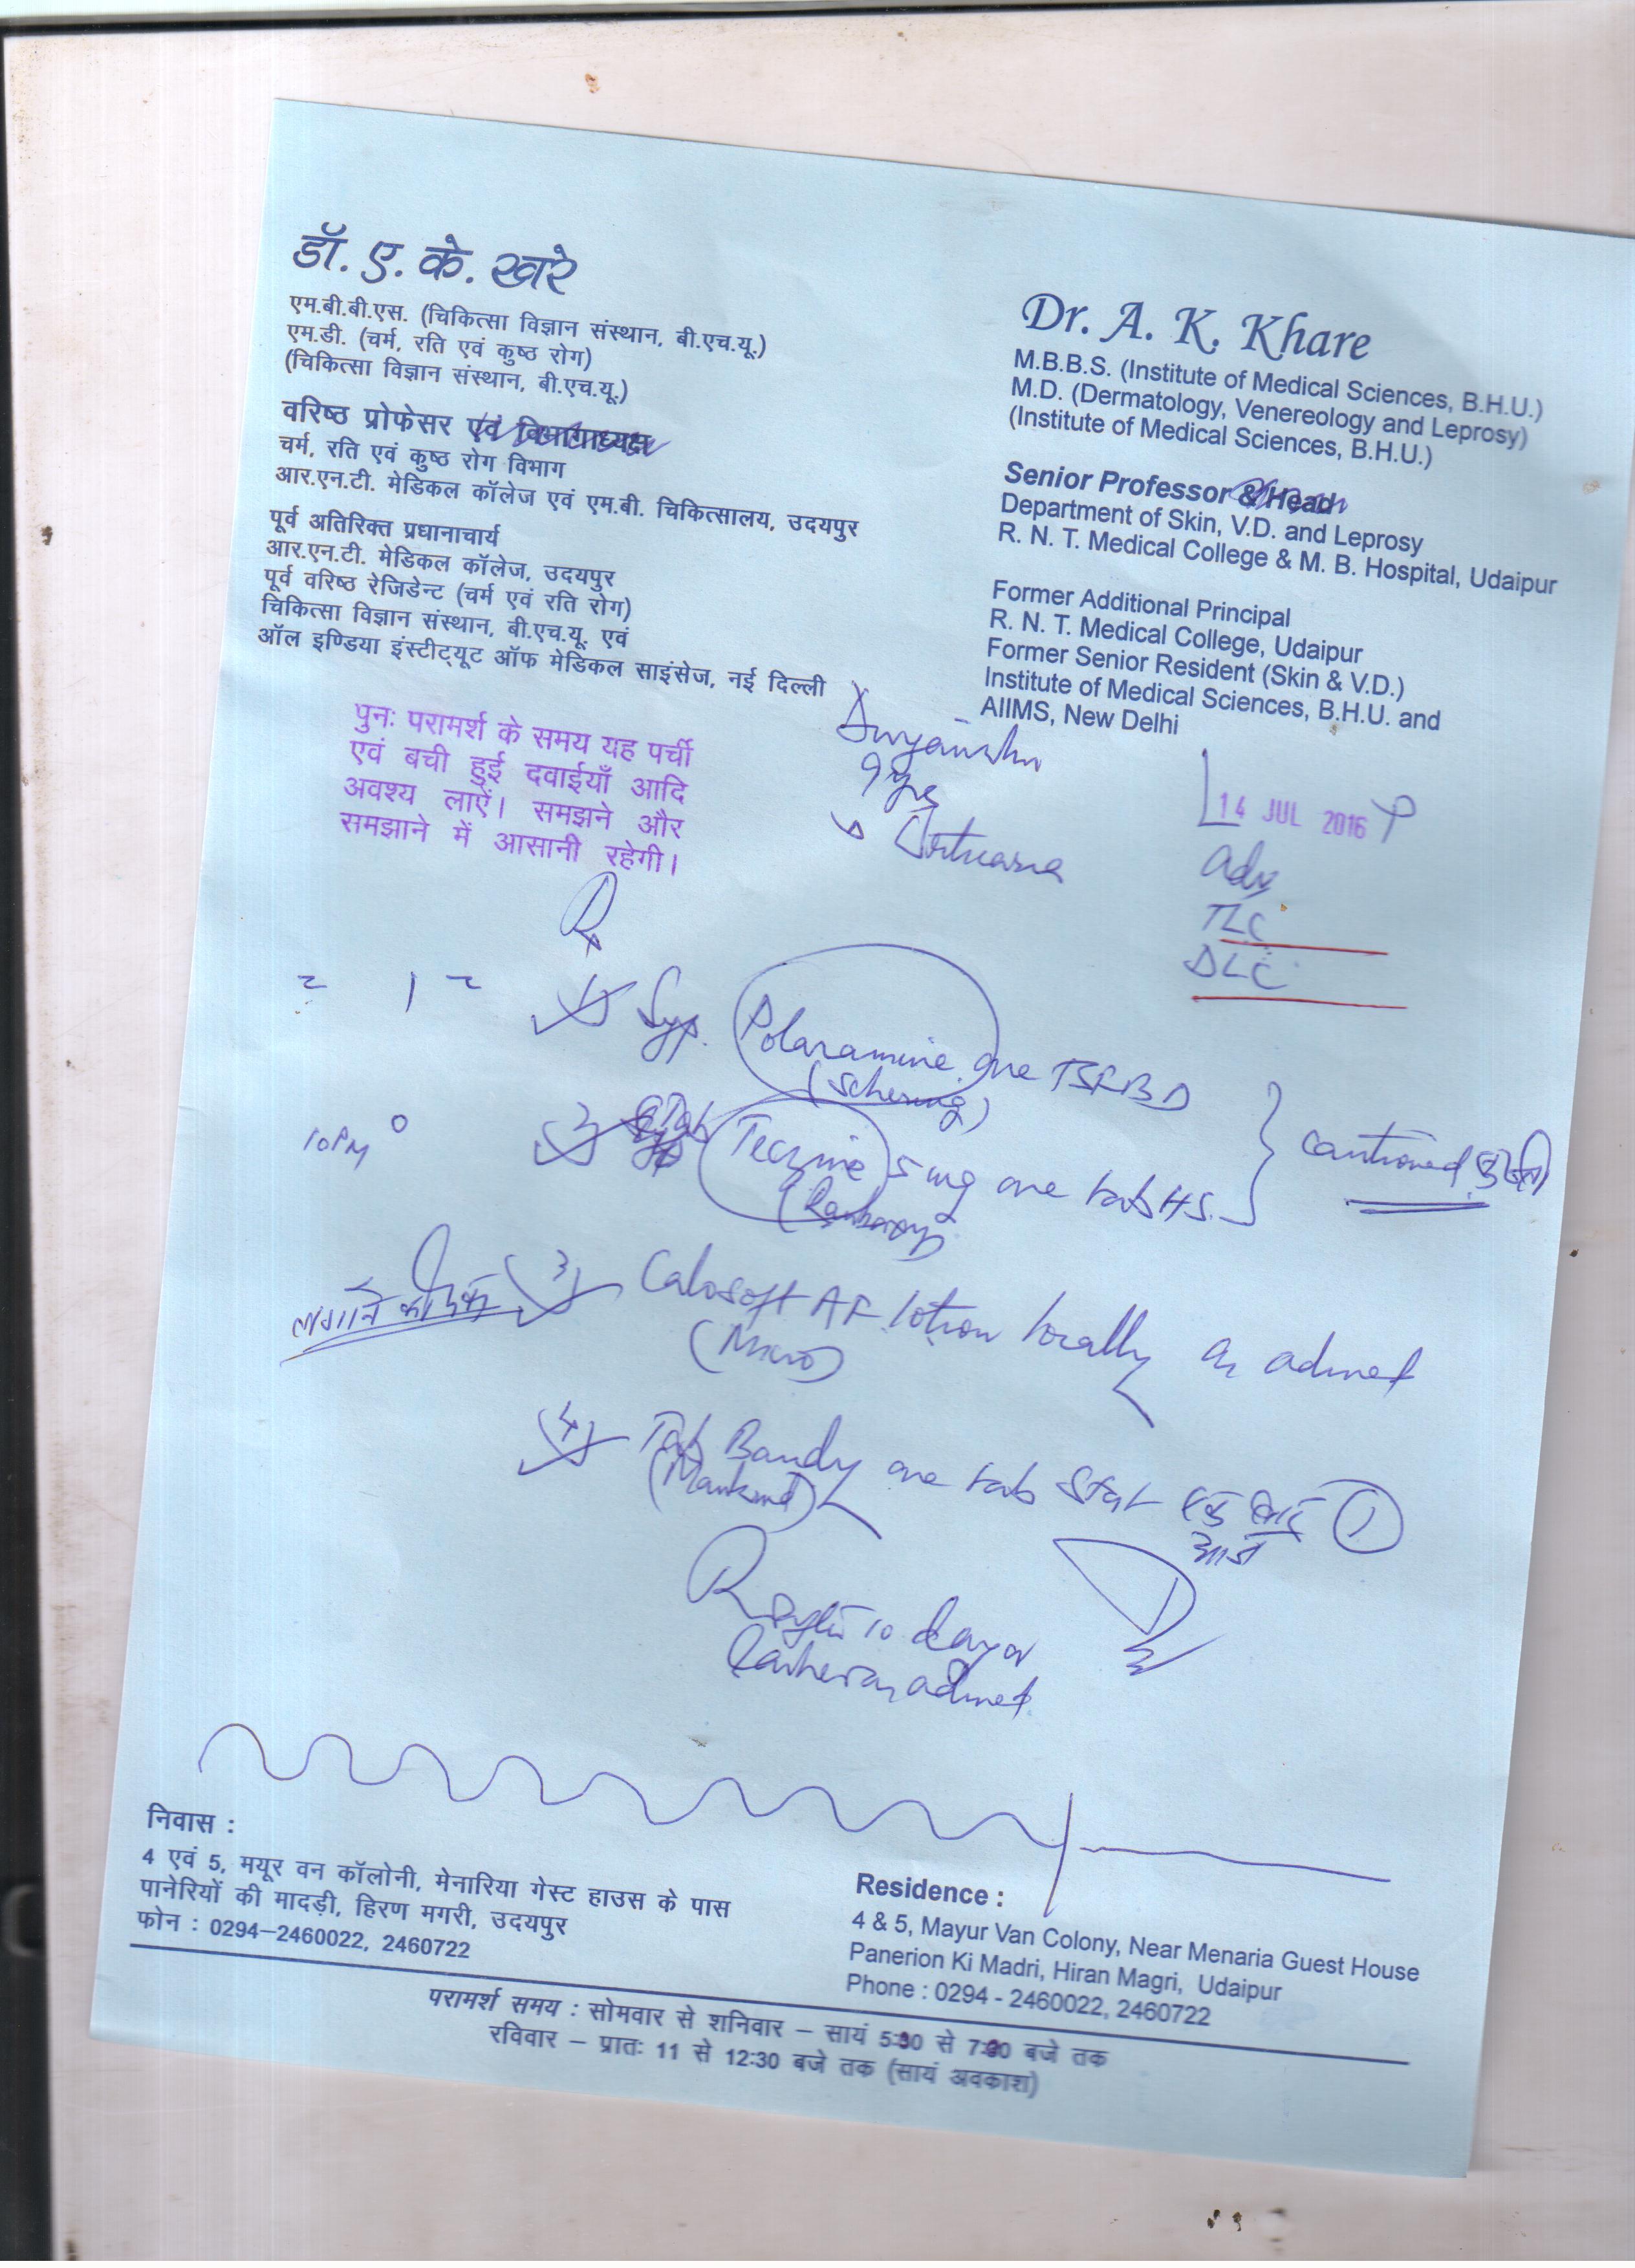 डॉ. ए. के. खरे
एम.बी.बी.एस. (चिकित्सा विज्ञान संस्थान, बी.एच.यू.)
एम.डी. (चर्म, रति एवं कुष्ठ रोग)
(चिकित्सा विज्ञान संस्थान, बी.एच.यू.)
वरिष्ठ प्रोफेसर एवं विभागाध्यक्ष
चर्म, रति एवं कुष्ठ रोग विभाग
आर.एन.टी. मेडिकल कॉलेज एवं एम.बी. चिकित्सालय, उदयपुर
पूर्व अतिरिक्त प्रधानाचार्य
आर.एन.टी. मेडिकल कॉलेज, उदयपुर
पूर्व वरिष्ठ रेजिडेन्ट (चर्म एवं रति रोग)
चिकित्सा विज्ञान संस्थान, बी.एच.यू. एवं
ऑल इण्डिया इंस्टीट्यूट ऑफ मेडिकल साइंसेज, नई दिल्ली
Dr. A. K. Khare
M.B.B.S. (Institute of Medical Sciences, B.H.U.)
M.D. (Dermatology, Venereology and Leprosy)
(Institute of Medical Sciences, B.H.U.)
Senior Professor & Head
Department of Skin, V.D. and Leprosy
R. N. T. Medical College & M. B. Hospital, Udaipur
Former Additional Principal
R. N. T. Medical College, Udaipur
Former Senior Resident (Skin & V.D.)
Institute of Medical Sciences, B.H.U. and
AIIMS, New Delhi
पुनः परामर्श के समय यह पर्ची
एवं बची हुई दवाईयाँ आदि
अवश्य लाऐं। समझने और
समझाने में आसानी रहेगी।
9 yrs
14 JUL 2016
Adv
TLC
DLC
Rx
1) Syp. Polaramine one TSF BD
(Schering)
10 PM
2) Tab Teczine 5 mg one tab HS.
(Ranbaxy)
cautioned
लगाने की दवा
3) Calosoft AF lotion locally
(Micro)
4) Tab Bandy one tab stat
(Mankind)
आज
10 day
निवास :
4 एवं 5, मयूर वन कॉलोनी, मेनारिया गेस्ट हाउस के पास
पानेरियों की मादड़ी, हिरण मगरी, उदयपुर
फोन : 0294-2460022, 2460722
Residence :
4 & 5, Mayur Van Colony, Near Menaria Guest House
Panerion Ki Madri, Hiran Magri, Udaipur
Phone : 0294 - 2460022, 2460722
परामर्श समय : सोमवार से शनिवार – सायं 5:30 से 7:30 बजे तक
रविवार – प्रातः 11 से 12:30 बजे तक (सायं अवकाश)